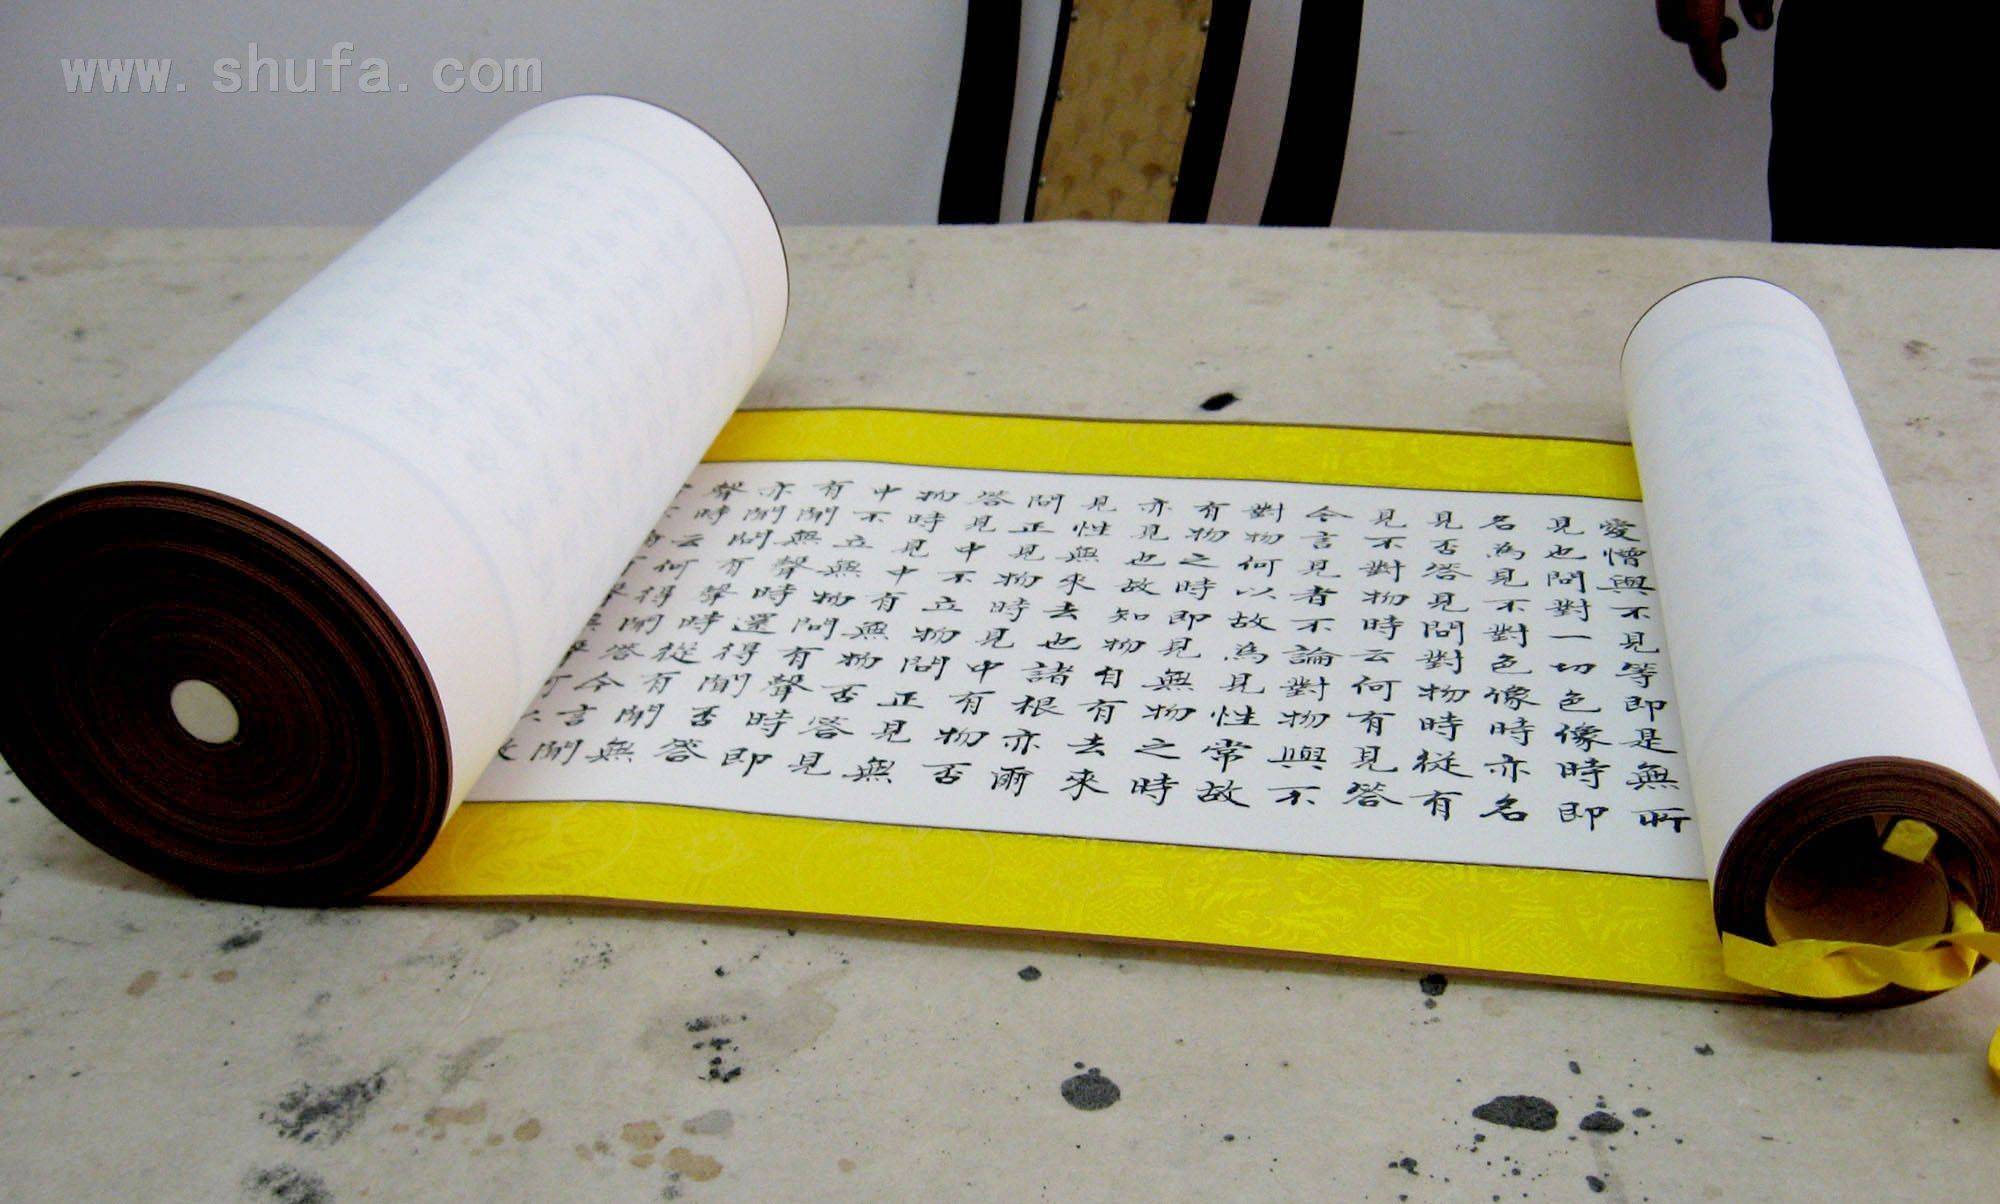 www.shufa.com
愛憎與不見等即是無所
見也問對一切色像時即
名為見不對色像時亦名
見否答見問對物時從有
見不對物時云何有見答
今言見者不論對物與不
對物何以故為見性常故
有物之時即見無物之時
亦見也故知物自有去來
見性無來去也諸根亦爾
問正見物時見中有物否
答見中不立物問正見無
物時見中有無物否答見
中不立無物問有聲時即
有聞無聲時還得聞否答
亦聞問有聲時從有聞無
聲時云何得聞答今言聞